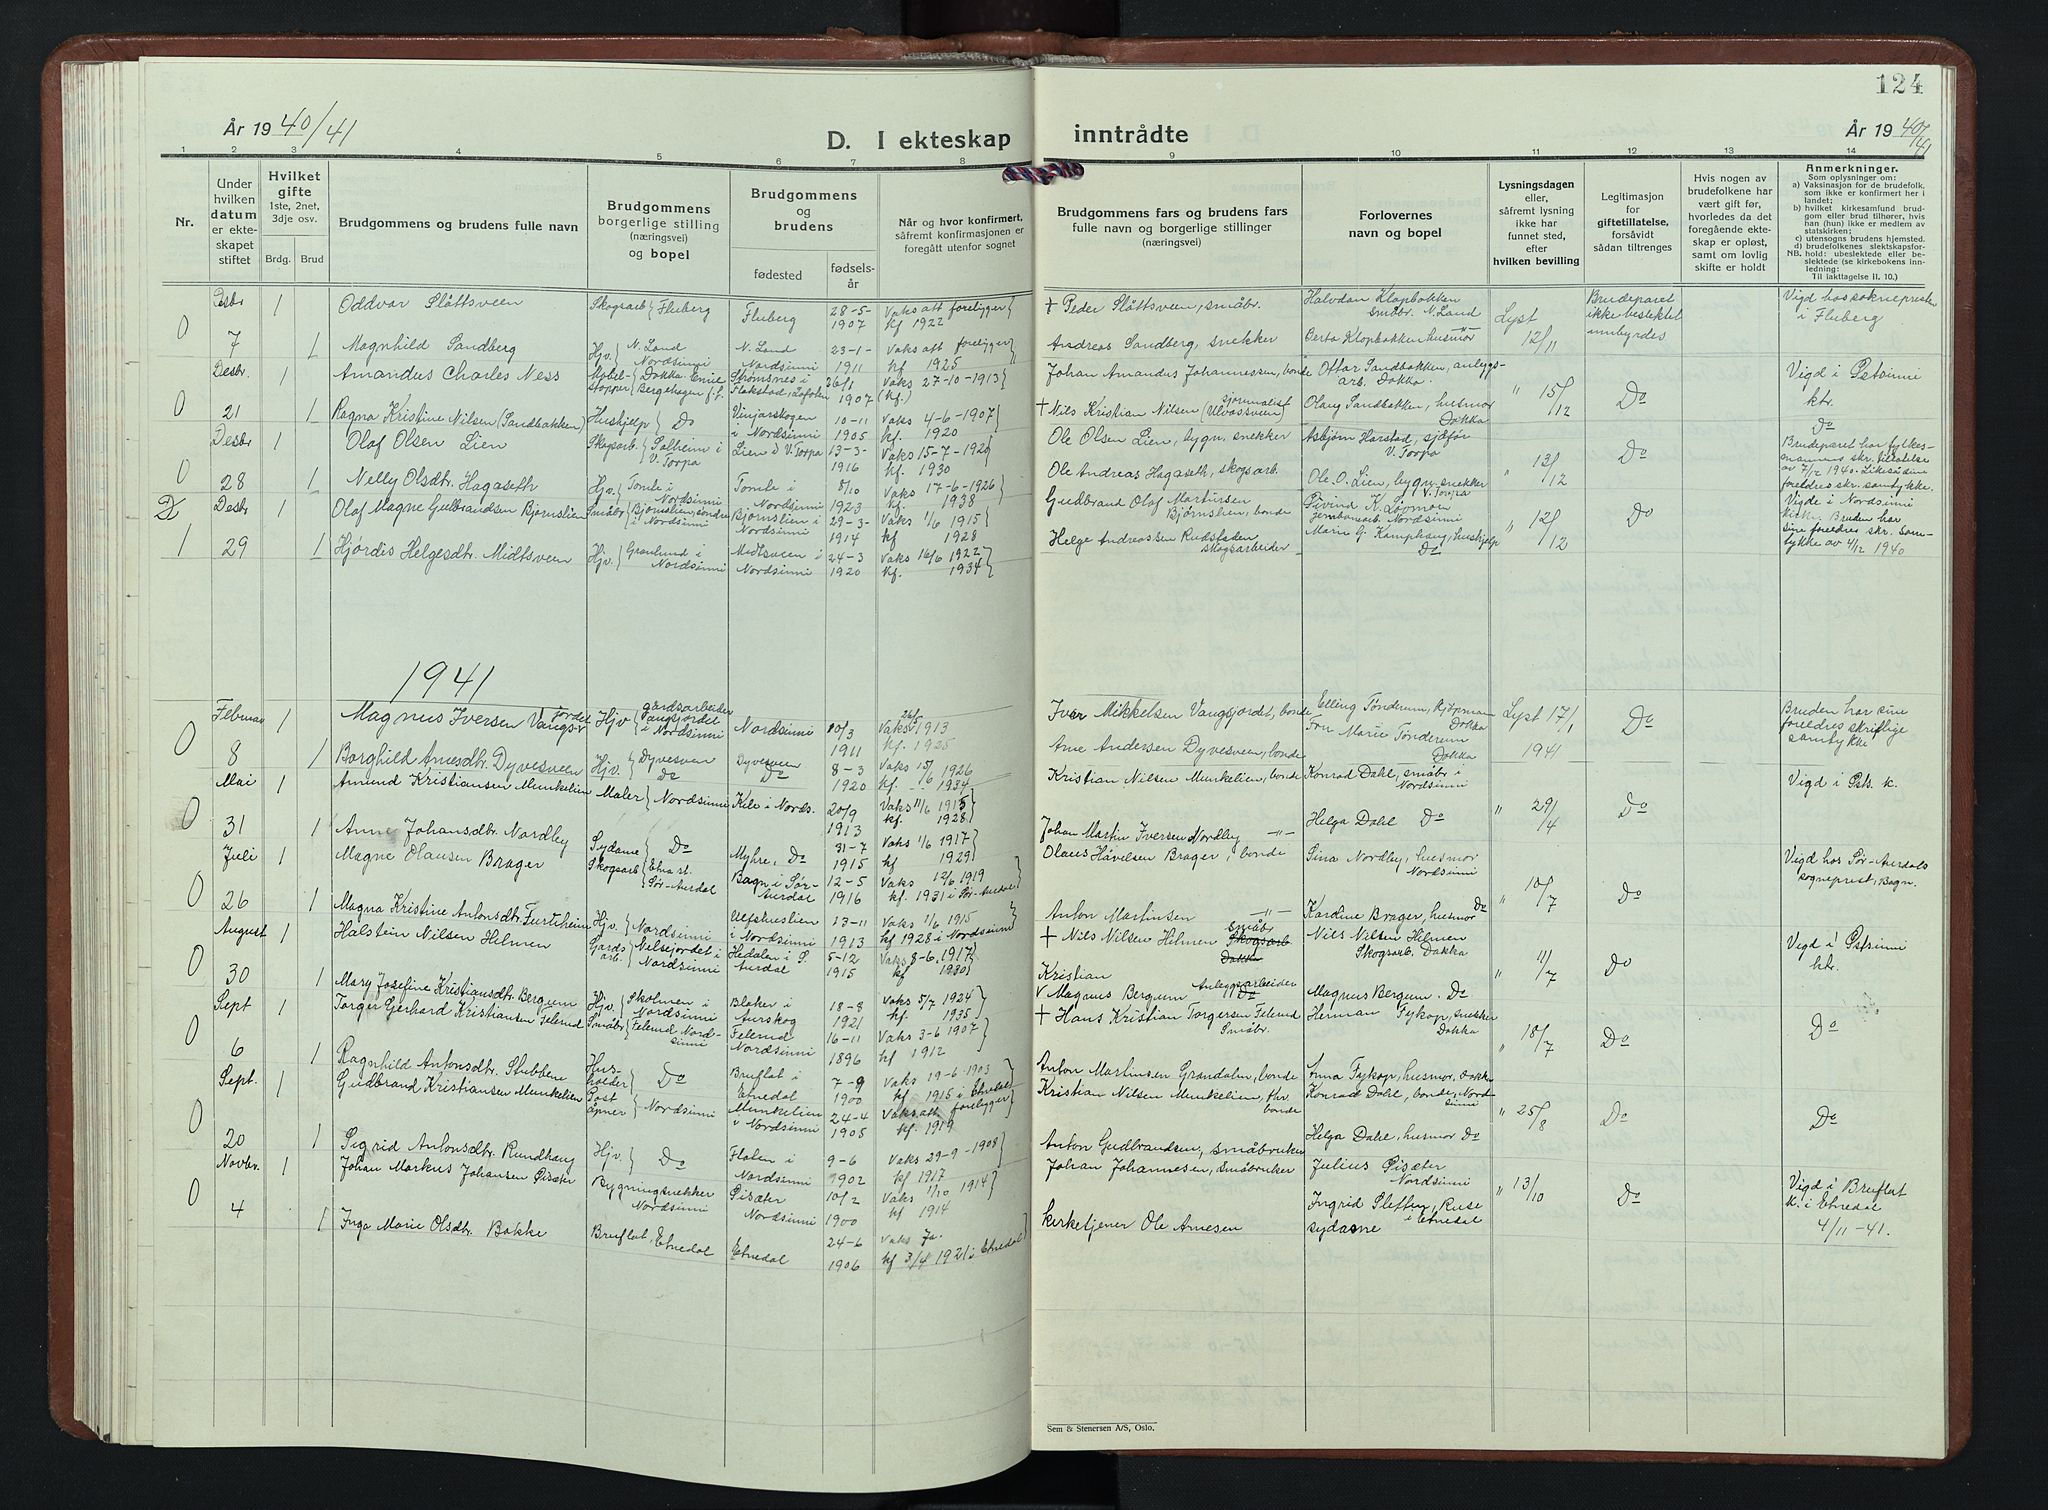 124
År 1940/41
D. I ekteskap inntrådte
År 1940/41
1 2 3 4 5 6 7 8 9 10 11 12 13 14
Nr.
Under hvilken datum er ekteskapet stiftet
Hvilket gifte 1ste, 2net, 3dje osv.
Brdg. Brud
Brudgommens og brudens fulle navn
Brudgommens borgerlige stilling (næringsvei) og bopel
Brudgommens og brudens
fødested
fødselsår
Når og hvor konfirmert, såfremt konfirmasjonen er foregått utenfor sognet
Brudgommens fars og brudens fars fulle navn og borgerlige stillinger (næringsvei)
Forlovernes navn og bopel
Lysningsdagen eller, såfremt lysning ikke har funnet sted, efter hvilken bevilling
Legitimasjon for giftetillatelse, forsåvidt sådan tiltrenges
Hvis nogen av brudefolkene har vært gift før, hvorledes da det foregående ekteskap er opløst, samt om lovlig skifte er holdt
Anmerkninger.
Som oplysninger om:
a) Vaksinasjon for de brudefolk, som ikke er konfirmert her i landet;
b) hvilket kirkesamfund brudgom eller brud tilhører, hvis han (hun) ikke er medlem av statskirken;
c) utensogns brudens hjemsted.
d) brudefolkenes slektskapsforhold: ubeslektede eller beslektede (se kirkebokens innledning:
NB.
Til iakttagelse II. 10.)
Desbr 1 Oddvar Slåttsveen Skogsarb Fluberg Fluberg 28-5-1907 Vaks att foreligger kf 1922 † Peder Slåttsveen, småbr. Halvdan Klopbakken småbr. N. Land Lyst 12/11 Brudeparet ikke beslektet innbyrdes Vigd hos sokneprester i Fluberg
0 7 1 Magnhild Sandberg Hjv. N. Land Nordsinni N. Land Nordsinni 23-1-1911 Vaks att foreligger kf 1925 Andreas Sandberg, snekker Berta Klopbakken husmor
Desbr. 1 Amandus Charles Ness Møbelstopper Dokka Emil Bergehagen Strømsnes i Flakstad, Lofoten 26/1 1907 Vaks 27-10-1913 (kf.) Johan Amandus Johannessen, bonde Ottar Sandbakken, anleggsarb. Dokka. " 15/12 Do Vigd i Østsinni ktr.
0 21 1 Ragna Kristine Nilsen (Sandbakken) Hushjelp Do Vinjarskogen i Nordsinni 10-11 1905 Vaks 4-6-1907 kf. 1920 † Nils Kristian Nilsen (Ulvassveen) sjournalist Olaug Sandbakken, husmor Dokka
Desbr 1 Olaf Olsen Lien Skogsarb Solheim i V. Torpa Lien i V. Torpa 13-3-1916 Vaks 15-7-1920 kf. 1930 Ole Olsen Lien, bygn. snekker Asbjørn Harstad, sjåfør V. Torpa " 13/12 Do Do Brudeparet har fylkesmannens skr. tillatelse av 7/12 1940. Likså sine foreldres skr. samtykke.
0 28 1 Nelly Olsdtr. Hagaseth Hjv. Tomle i Nordsinni Tomle i Nordsinni 8/10 1923 Vaks 17-6-1926 kf. 1938 Ole Andreas Hagaseth, skogsarb. Ole O. Lien, bygn. snekker V. Torpa
Desbr 1 Olaf Magne Gulbrandsen Bjørnslien Småbr Bjørnslien, søndre i Nordsinni Bjørnslien i Nordsinni 29-3-1914 Vaks 1/6 1915 kf 1928 Gudbrand Olaf Martinsen Bjørnslien, bonde Øivind K. Løvmoen jernbanearb. Nordsinni " 12/12 Do Vigde i Nordsinni kirke. Bruden har sine foreldres skr. samtykke av 4/12 1940
1 29 1 Hjørdis Helgesdtr. Midtsveen Hjv. Granlund i Nordsinni Midtsveen i Nordsinni 24-3 1920 Vaks 16/6 1922 kf. 1934 Helge Andreassen Rudsfaden skogsarbeider Marie G. Kamphaug, hushjelp Do
1941
Februar 1 Magnus Iversen Vangsjordet Hjv gardsarbeider Vangsjordet i Nordsinni Nordsinni 20/3 1911 Vaks 26/5 1913 kf. 1925 Iver Mikkelsen Vangsjordet, bonde Elling Tønderum, kjøpmann Dokka Lyst 17/1 1941 Do Bruden har sine foreldres skriftlige samtykke
0 8 1 Borghild Arnesdtr. Dyvesveen Hjv. Dyvesveen Do Dyvesveen Do 8-3 1920 Vaks 15/6 1926 kf. 1934 Arne Andersen Dyvesveen, bonde Fru Marie Tønderum Dokka
Mai 1 Amund Kristiansen Munkelien Maler Nordsinni Kile i Nords. 20/9 1913 Vaks 11/6 1915 kf. 1928 Kristian Nilsen Munkelien, bonde Konrad Dahl, småbr i Nordsinni " 29/4 Do Vigd i Østs. k.
0 31 1 Anne Johansdtr. Nordby Sydame Do Myhre, Do 31-7 1915 Vaks 1/6 1917 kf 1929 Johan Martin Iversen Nordby -"- Helga Dahl Do
Juli 1 Magne Olausen Brager Skogsarb Etna st. Sør-Aurdal Bagn i Sør-Aurdal 12-5 1916 Vaks 12/6 1919 kf. 1931 i Sør-Aurdal Olaus Håvelsen Brager, bonde Sina Nordby, husmor Nordsinni " 10/7 Do Vigd hos Sør-Aurdals sogneprest, Bagn.
0 26 1 Magna Kristine Antonsdtr. Furuheim Hjv. Nordsinni i Nordsinni 13-11 1913 Vaks 1/6 1915 kf 1928 i Nordsinni Anton Martinsen -"- Kardine Brager, husmor Do
August 1 Halstein Nilsen Hilmen Gards arb. Nilsejordet i Nordsinni Hedalen i S. Aurdal 5-12 1915 Vaks 8-6-1917 kf 1930 † Nils Nilsen Hilmen Småbr Skogsarb Dokka Nils Nilsen Hilmen Skogsarb. Dokka " 11/7 Do Vigd i Østsinni ktr.
0 30 1 Mary Josefine Kristiansdtr. Bergum Hjv. Skolmen i Nordsinni Blaker i Aurskog 18-8 1921 Vaks 5/7 1924 kf. 1935 Kristian V Magnus Bergum Anleggsarbeider Do Magnus Bergum. Do
Sept 1 Torger Gerhard Kristiansen Felerud Småbr Felerud Nordsinni Felerud Nordsinni 16-11 1896 Vaks 3-6-1907 kf 1912 † Hans Kristian Torgersen Felerud Småbr. Herman Fykop, snekker Dokka " 18/7 Do Do
0 6 1 Ragnhild Antonsdtr. Stubbene Husholder Do Bruflat i Etnedal 7-9 1900 Vaks 19-6-1903 kf. 1915 i Etnedal Anton Martinsen Grøndalen, bonde Anna Fykop, husmor, Dokka
Sept. 1 Gudbrand Kristiansen Munkelien Poståpner Nordsinni Munkelien i Nordsinni 24-4 1905 Vaks att. foreligger kf. 1919 Kristian Nilsen Munkelien, fhv. bonde Konrad Dahl, bonde, Nordsinni " 25/8 Do Do
0 20 1 Sigrid Antonsdtr. Rundhaug Hjv. Do Flaten i Nordsinni 9-6 1902 Vaks 29-9-1908 kf 1917 Anton Gudbrandsen, småbruker Helga Dahl, husmor Do
Novbr. 1 Johan Markus Johansen Øisæter Bygningsnekker Nordsinni Øisæter Nordsinni 10/2 1900 Vaks 1/10 1914 kf 1914 Johan Johannesen, småbruker Julius Øisæter Nordsinni " 13/10 Do Vigd i Bruflat K. i Etnedal 4/11-41.
0 4 1 Inga Marie Olsdtr. Bakke Bruflat, Etnedal Etnedal 24-6 1906 Vaks Ja. kf 3/4 1921 i Etnedal kirketjener Ole Arnesen Ingrid Sleften, Ruse i Etnedal sydame
Sem & Stenersen A/S, Oslo.